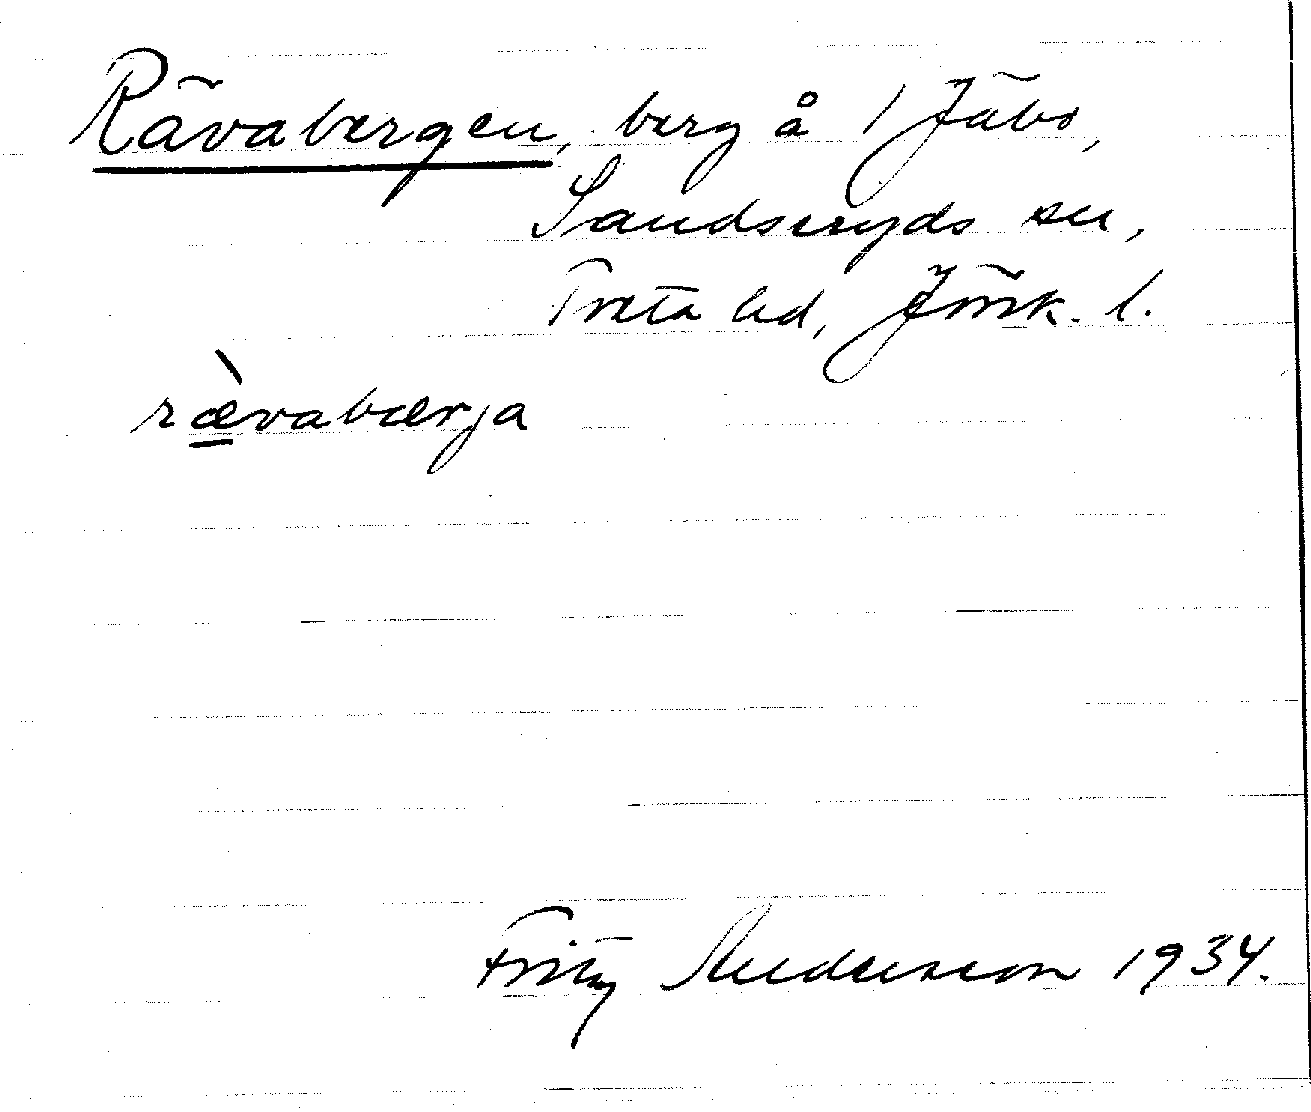 Rävabergen, berg å 1 Jäbo,
Sandseryds sn,
Tveta hd, Jönk. l.
rævabærja
Fritz Andersson 1934.